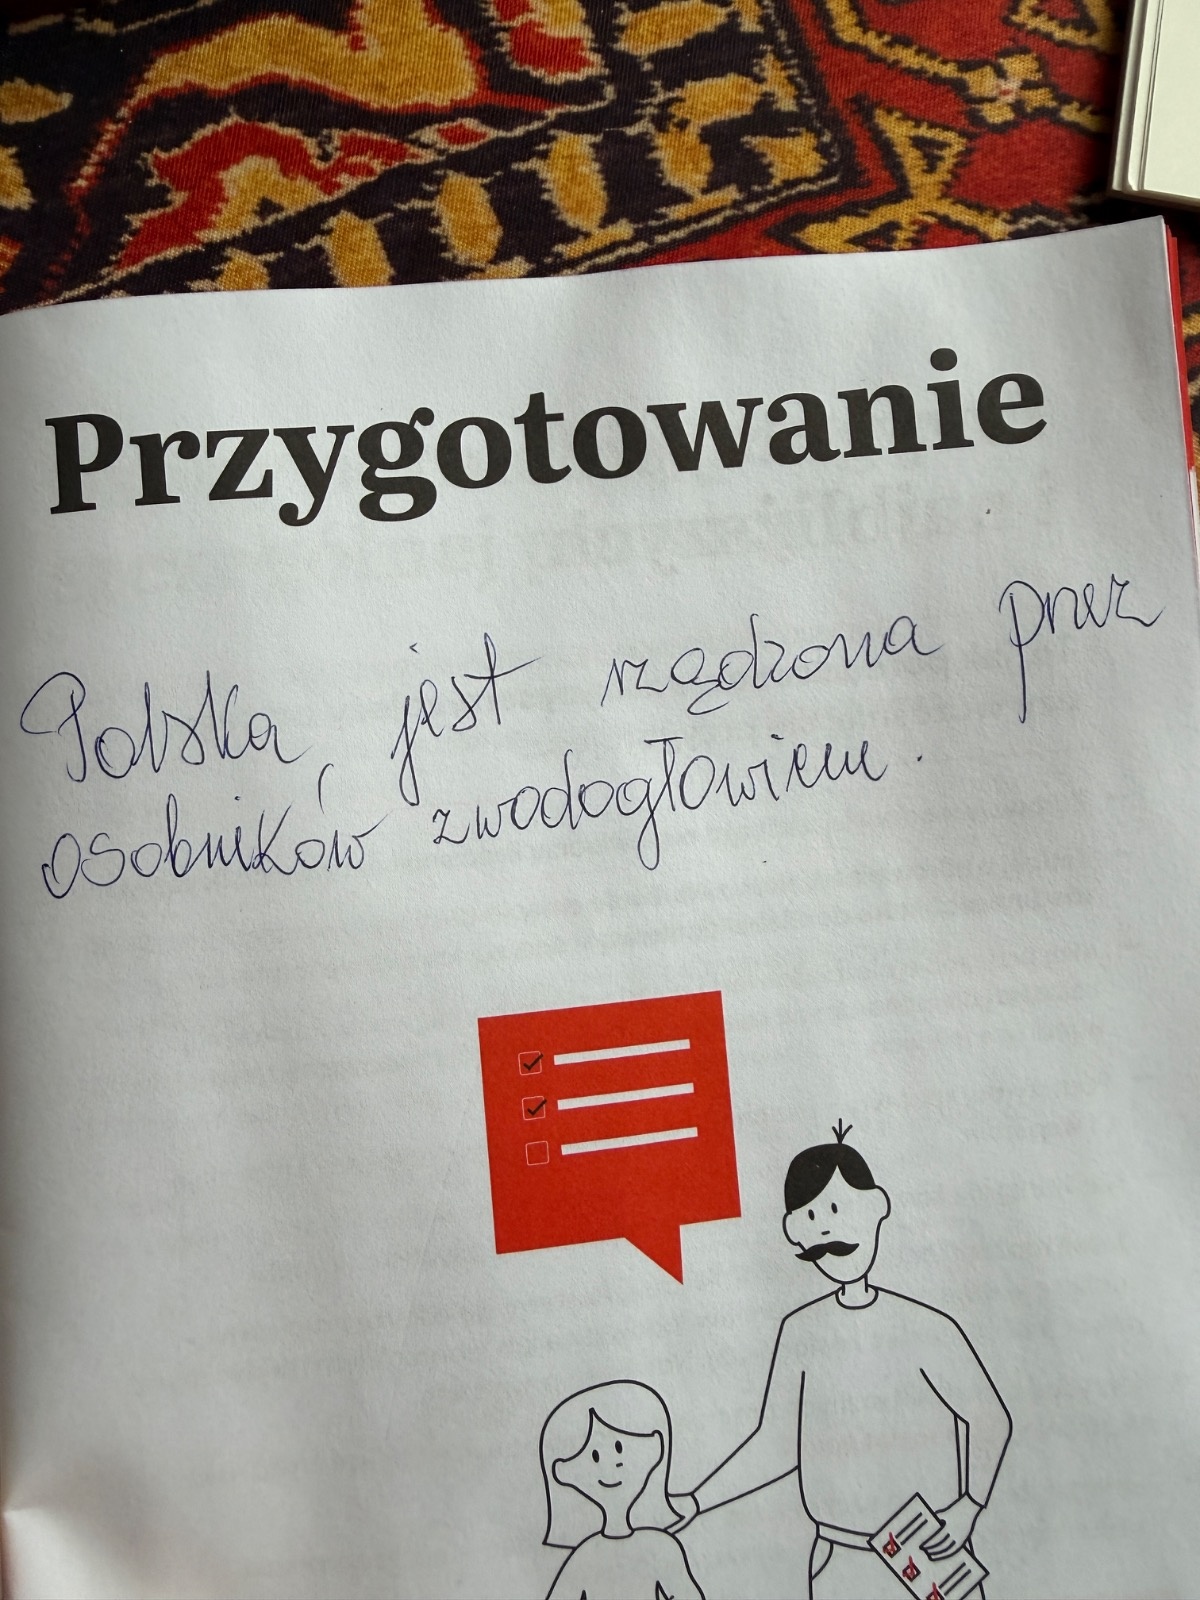 Przygotowanie
Polska jest rządzona przez
osobników zwodogłowiem.